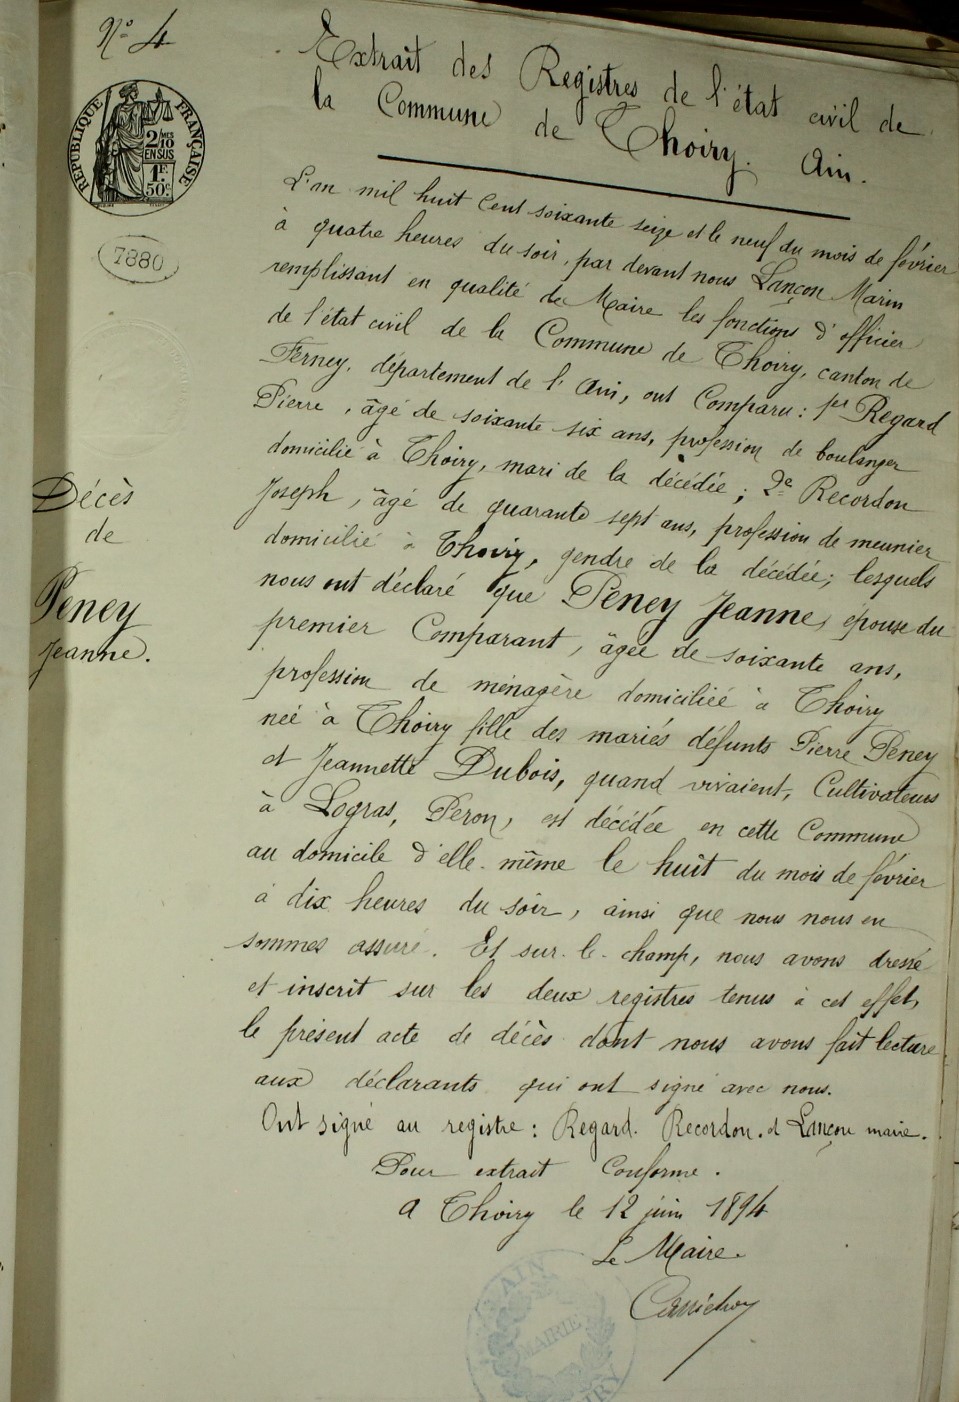 N° 4
RÉPUBLIQUE FRANÇAISE
2/10 MES
EN SUS
1F.
50c.
7880
Extrait des Registres de l'état civil de
la Commune de Thoiry. Ain.
L'an mil huit cent soixante seize et le neuf du mois de février
à quatre heures du soir, par devant nous Lançon Marin
remplissant en qualité de Maire les fonctions d'officier
de l'état civil de la Commune de Thoiry, canton de
Ferney, département de l'Ain, ont Comparu : 1er Regard
Pierre, âgé de soixante six ans, profession de boulanger
domicilié à Thoiry, mari de la décédée ; 2e Recordon
Joseph, âgé de quarante sept ans, profession de meunier
domicilié à Thoiry, gendre de la décédée ; lesquels
nous ont déclaré que Peney Jeanne, épouse du
premier Comparant, âgée de soixante ans,
profession de ménagère domiciliée à Thoiry
née à Thoiry fille des mariés défunts Pierre Peney
et Jeannette Dubois, quand vivaient, Cultivateurs
à Logras, Peron, est décédée en cette Commune
au domicile d'elle-même le huit du mois de février
à dix heures du soir, ainsi que nous nous en
sommes assuré. Et sur-le-champ, nous avons dressé
et inscrit sur les deux registres tenus à cet effet,
le présent acte de décès dont nous avons fait lecture
aux déclarants qui ont signé avec nous.
Ont signé au registre : Regard. Recordon. et Lançon maire.
Pour extrait Conforme.
A Thoiry le 12 juin 1894
Le Maire.
Décès
de
Peney
Jeanne.
AIN
MAIRIE